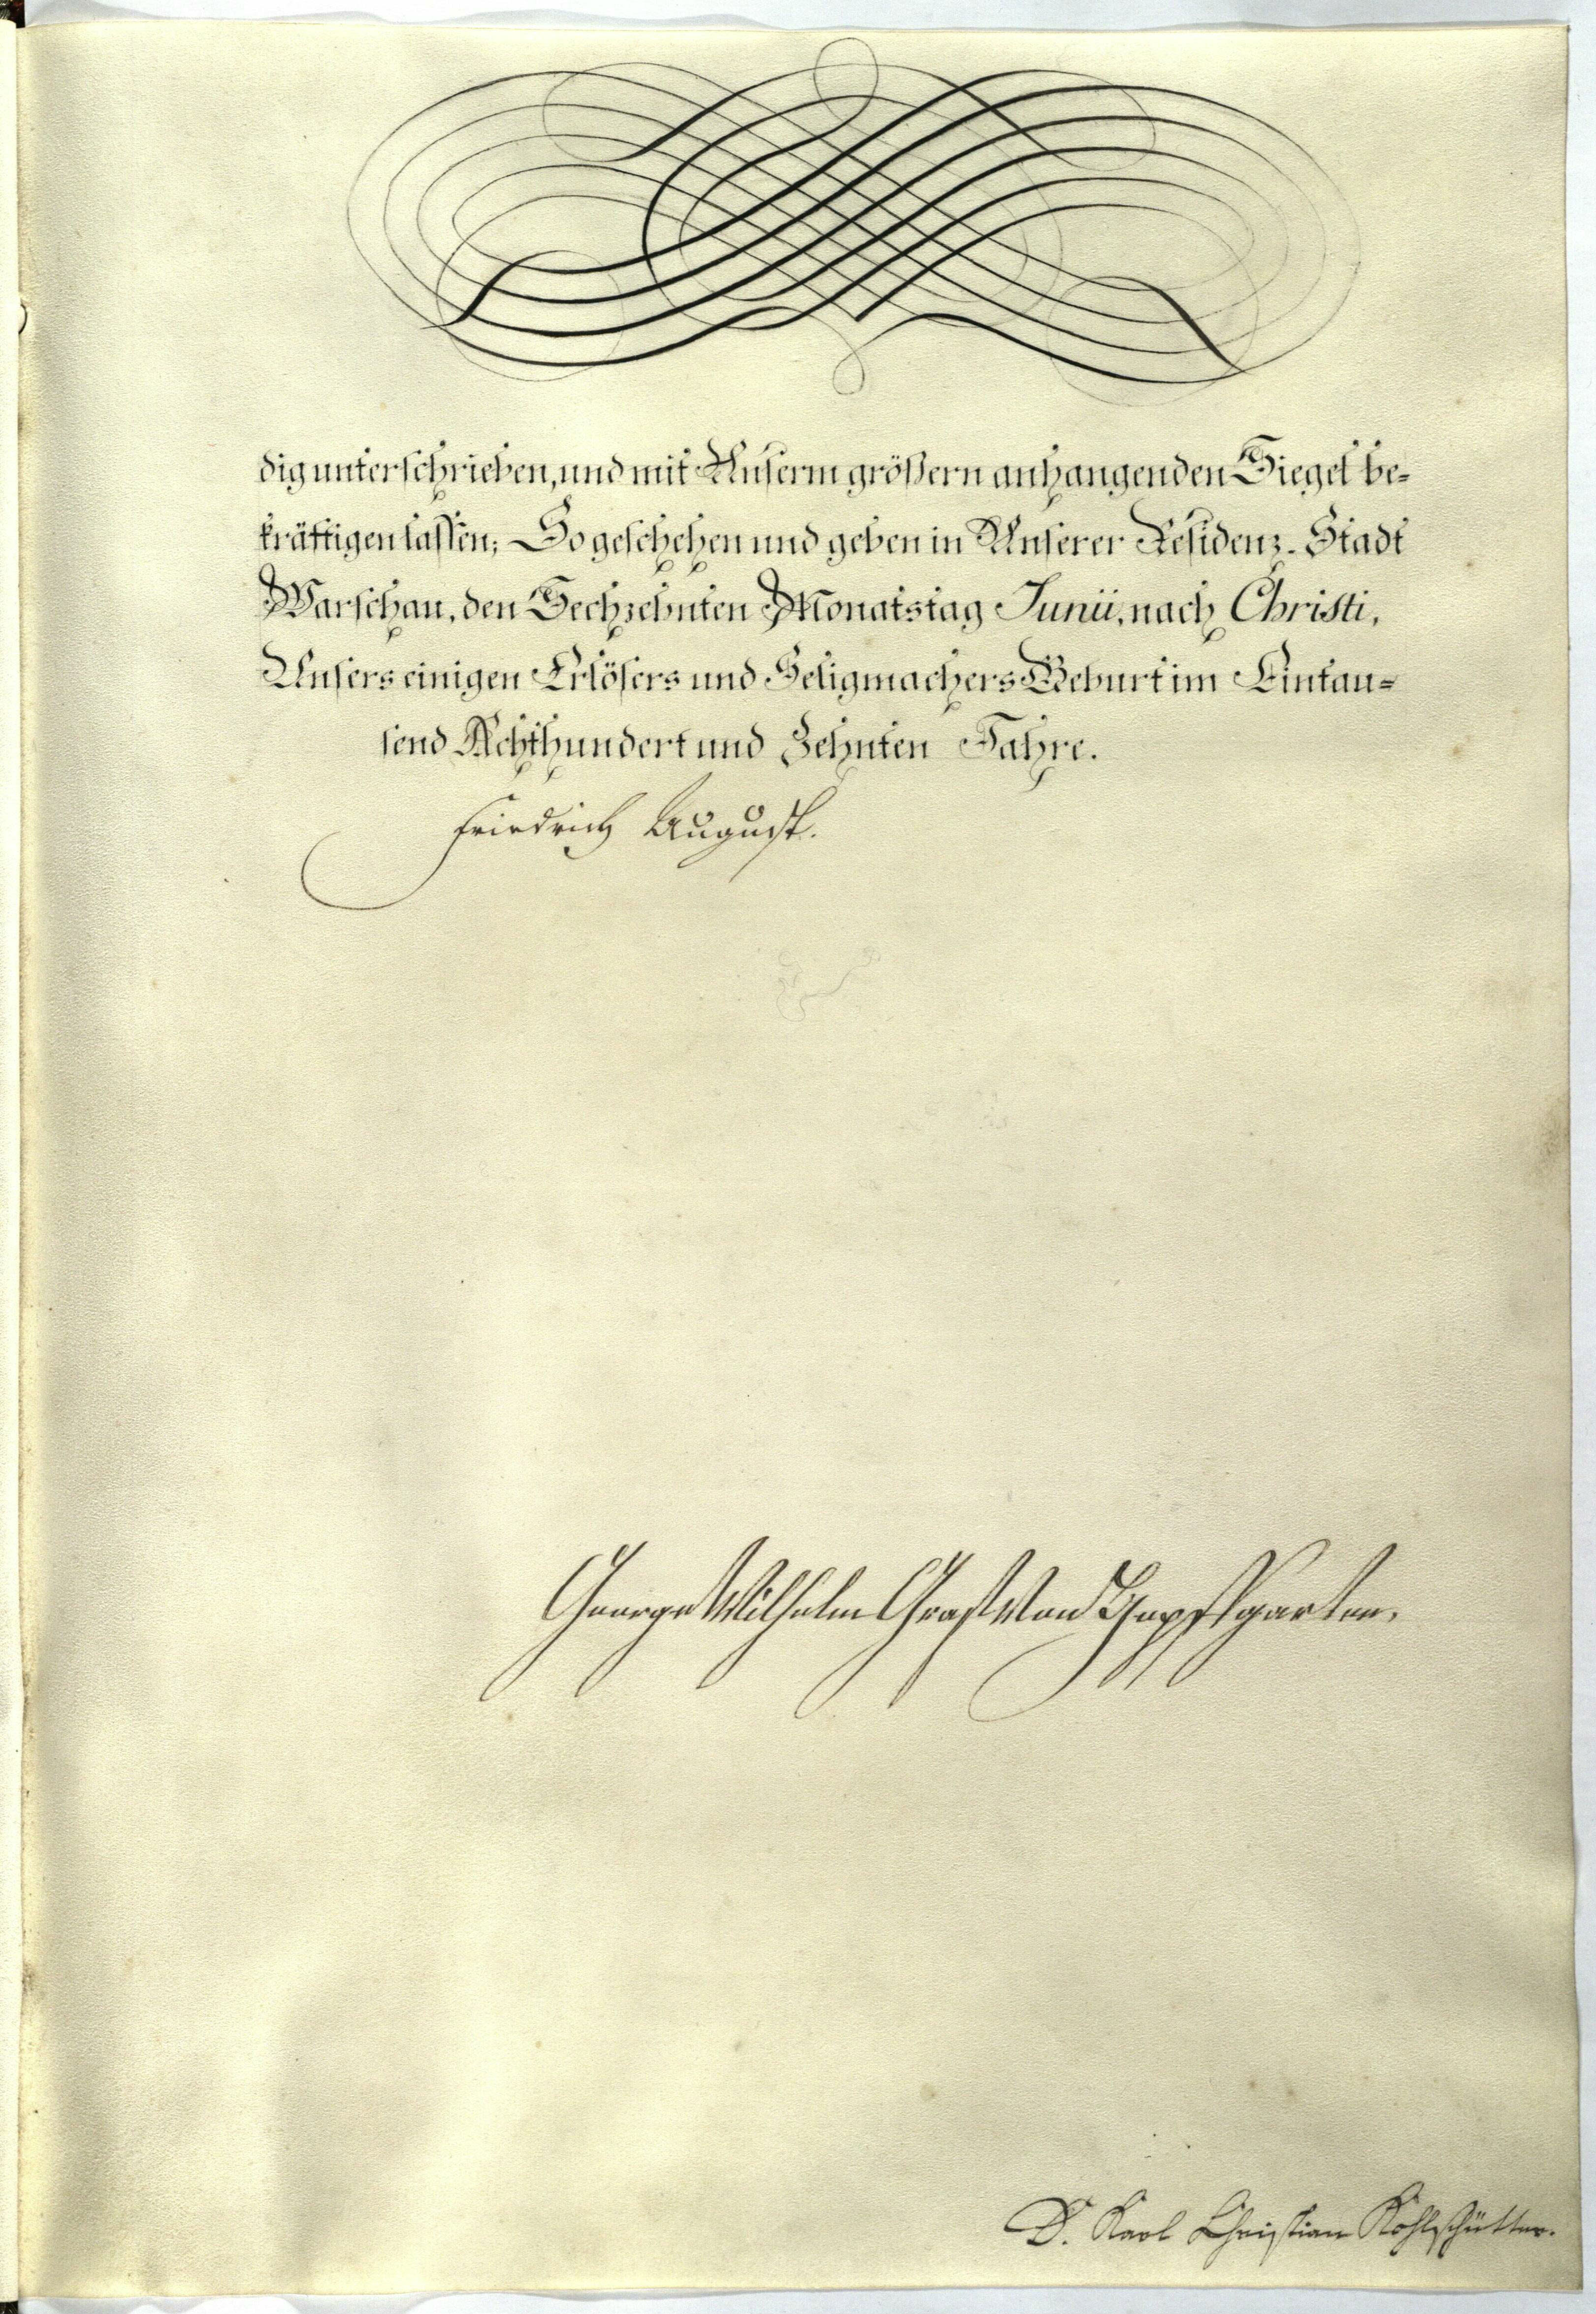 dig unterschrieben, und mit Unserm größern anhangenden Siegel be-
kräftigen lassen; So geschehen und geben in Unserer Residenz-Stadt
Warschau, den Sechzehnten Monatstag Junii, nach Christi,
Unsers einigen Erlösers und Seligmachers Geburt im Eintau-
send Achthundert und Zehnten Jahre.
Friedrich August.
George Wilhelm Graf von Hopffgarten.
D. Karl Christian Kohlschütter.